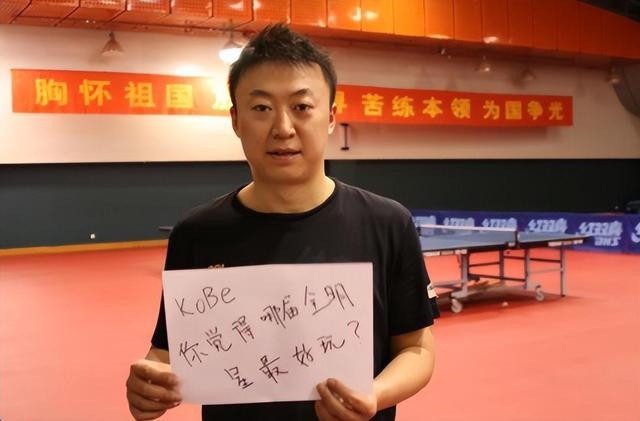 胸怀祖国
苦练本领 为国争光
KoBe
你觉得哪届全明
星最好玩?